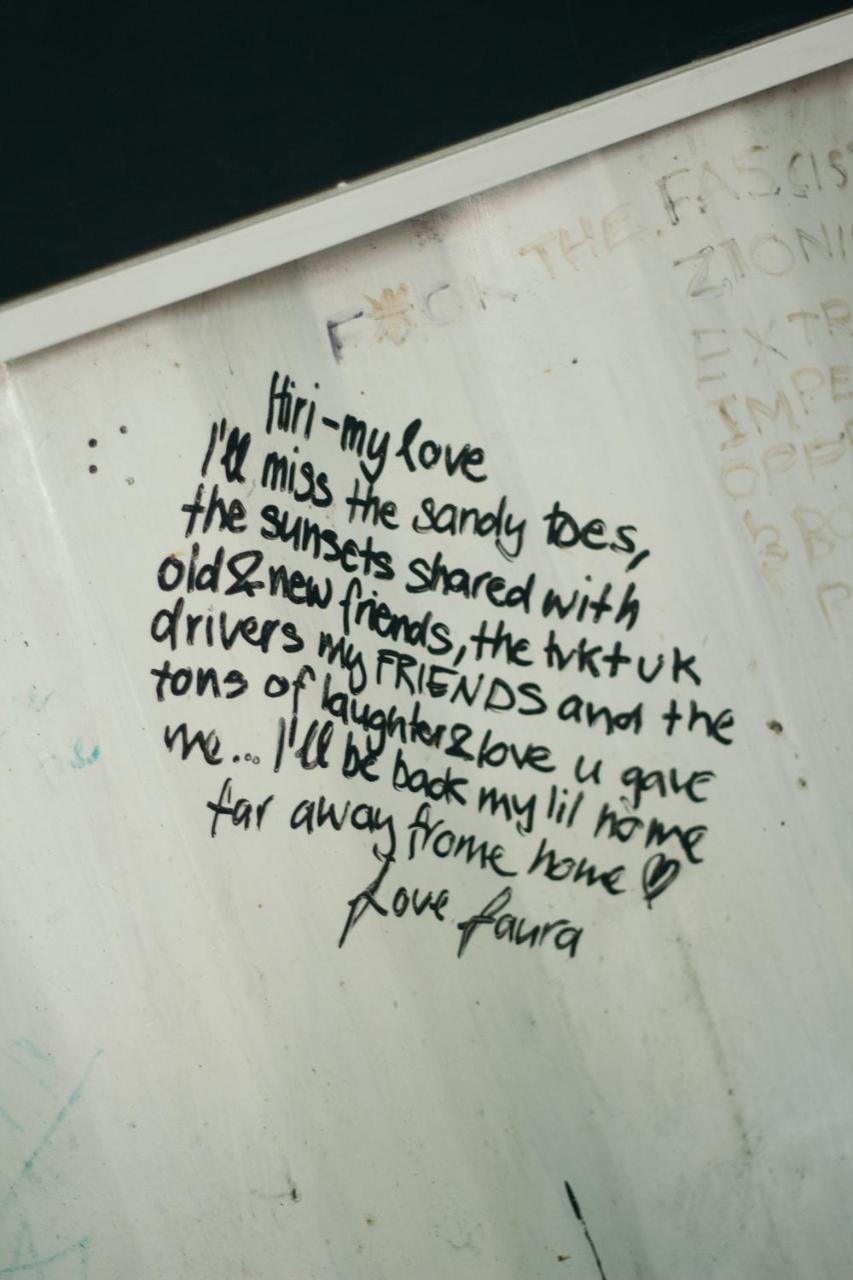 F*CK THE FASCIS
ZIONI
EXTR
IMPE
OPP
& BO
P
Hiri - my love
I'll miss the sandy toes,
the sunsets shared with
old & new friends, the tvk+uk
drivers my FRIENDS and the
tons of laughter & love u gave
me... I'll be back my lil home
far away frome home ♡
Love Laura